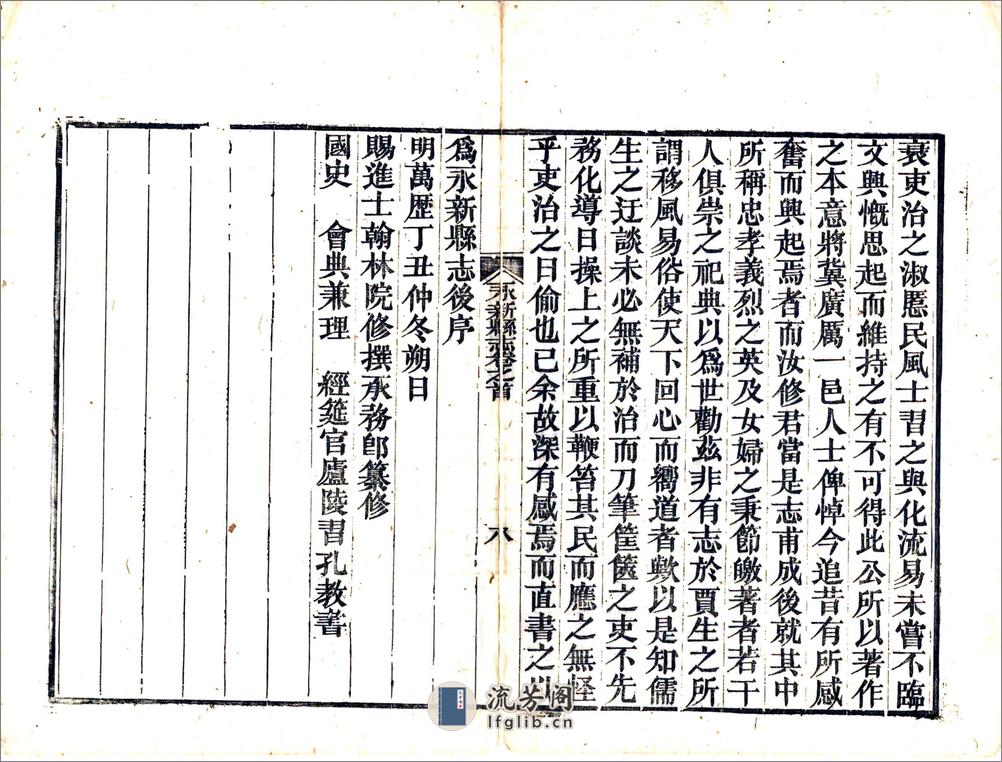 衰吏治之淑慝民風士習之與化流易未嘗不臨
文興慨思起而維持之有不可得此公所以著作
之本意將冀廣厲一邑人士俾悼今追昔有所感
奮而興起焉者而汝修君當是志甫成後就其中
所稱忠孝義烈之英及女婦之秉節皦著者若干
人俱崇之祀典以為世勸茲非有志於賈生之所
謂移風易俗使天下回心而嚮道者歟以是知儒
生之迂談未必無補於治而刀筆筐篋之吏不先
務化導日操上之所重以鞭笞其民而應之無怪
乎吏治之日偷也已余故深有感焉而直書之以
永新縣志卷之首
八
為永新縣志後序
明萬歷丁丑仲冬朔日
賜進士翰林院修撰承務郎纂修
國史 會典兼理 經筵官廬陵習孔教書
流芳阁
lfglib.cn